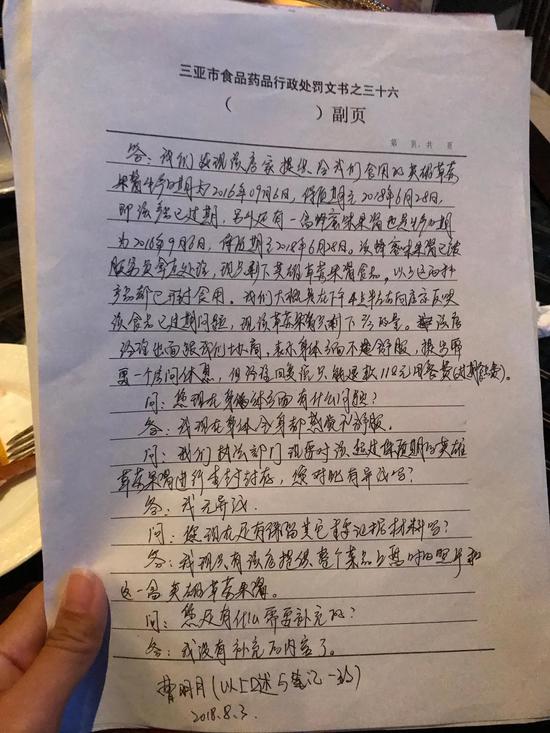 三亚市食品药品行政处罚文书之三十六
( )副页
第 页,共 页
答:我们发现该店家提供给我们食用的英雄草莓
果酱生产日期为2016年09月6日,保质期至2018年6月28日,
即该产品已过期,另外还有一高蜂蜜味果酱也是生产日期
为2016年9月6日,保质期至2018年6月28日。该蜂蜜味果酱已被
服务员拿走处理,现只剩下英雄草莓果酱食品。以上这两种
产品都已开封食用。我们大概是在下午4点半左右向店方反映
该食品已过期问题,现该草莓果酱只剩下 的量。该店
经理出面跟我们协商,表示身体方面不舒服,提出需
要一个房间休息,但经理回复说只能退款118元用餐费(过期食品)。
问:您现在身体方面有什么问题?
答:我现在身体全身都感觉不舒服。
问:我们执法部门现要对该超过保质期的英雄
草莓果酱进行查封封存,您对此有异议吗?
答:我无异议.
问:您现在还有保留其它书证据材料吗?
答:我现只有该店提供整个菜品上桌时的照片和
这一高英雄草莓果酱。
问:您还有什么需要补充的?
答:我没有补充的内容了。
曹明月(以上口述与笔记一致)
2018.8.3.